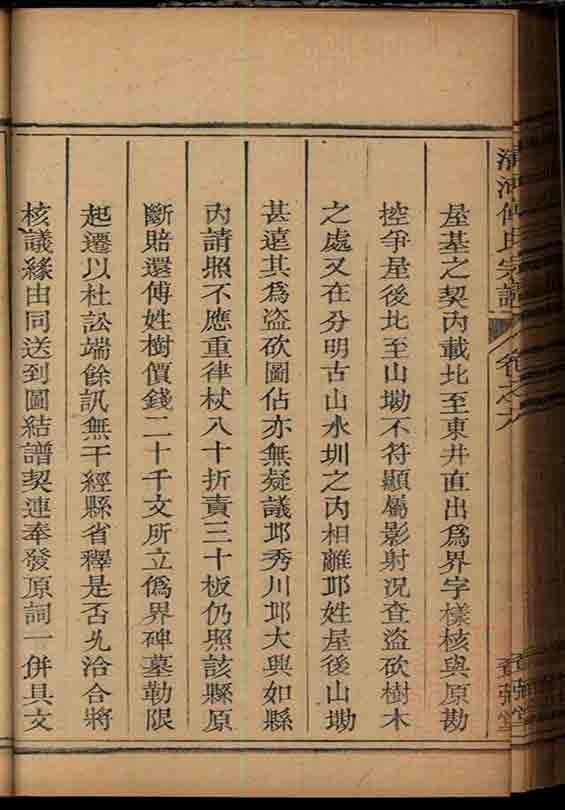 清河傅氏宗譜
卷之九
壹彌堂
屋基之契內載北至東井直出爲界字樣核與原勘
控爭屋後北至山塝不符顯屬影射况查盜砍樹木
之處又在分明古山水圳之內相離邧姓屋後山塝
甚遠其爲盜砍圖佔亦無疑議邧秀川邧大興如縣
內請照不應重律杖八十折責三十板仍照該縣原
斷賠還傅姓樹價錢二十千文所立僞界碑墓勒限
起遷以杜訟端餘訊無干經縣省釋是否允洽合將
核議緣由同送到圖結譜契連奉發原詞一併具文